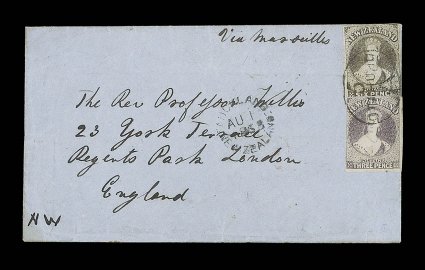 Via Marseilles
NEW ZEALAND
THREE PENCE
NEW ZEALAND
THREE PENCE
AUCKLAND
AU 1
NEW ZEALAND
The Rev Professor Willis
23 York Terrace
Regents Park London
England
NW